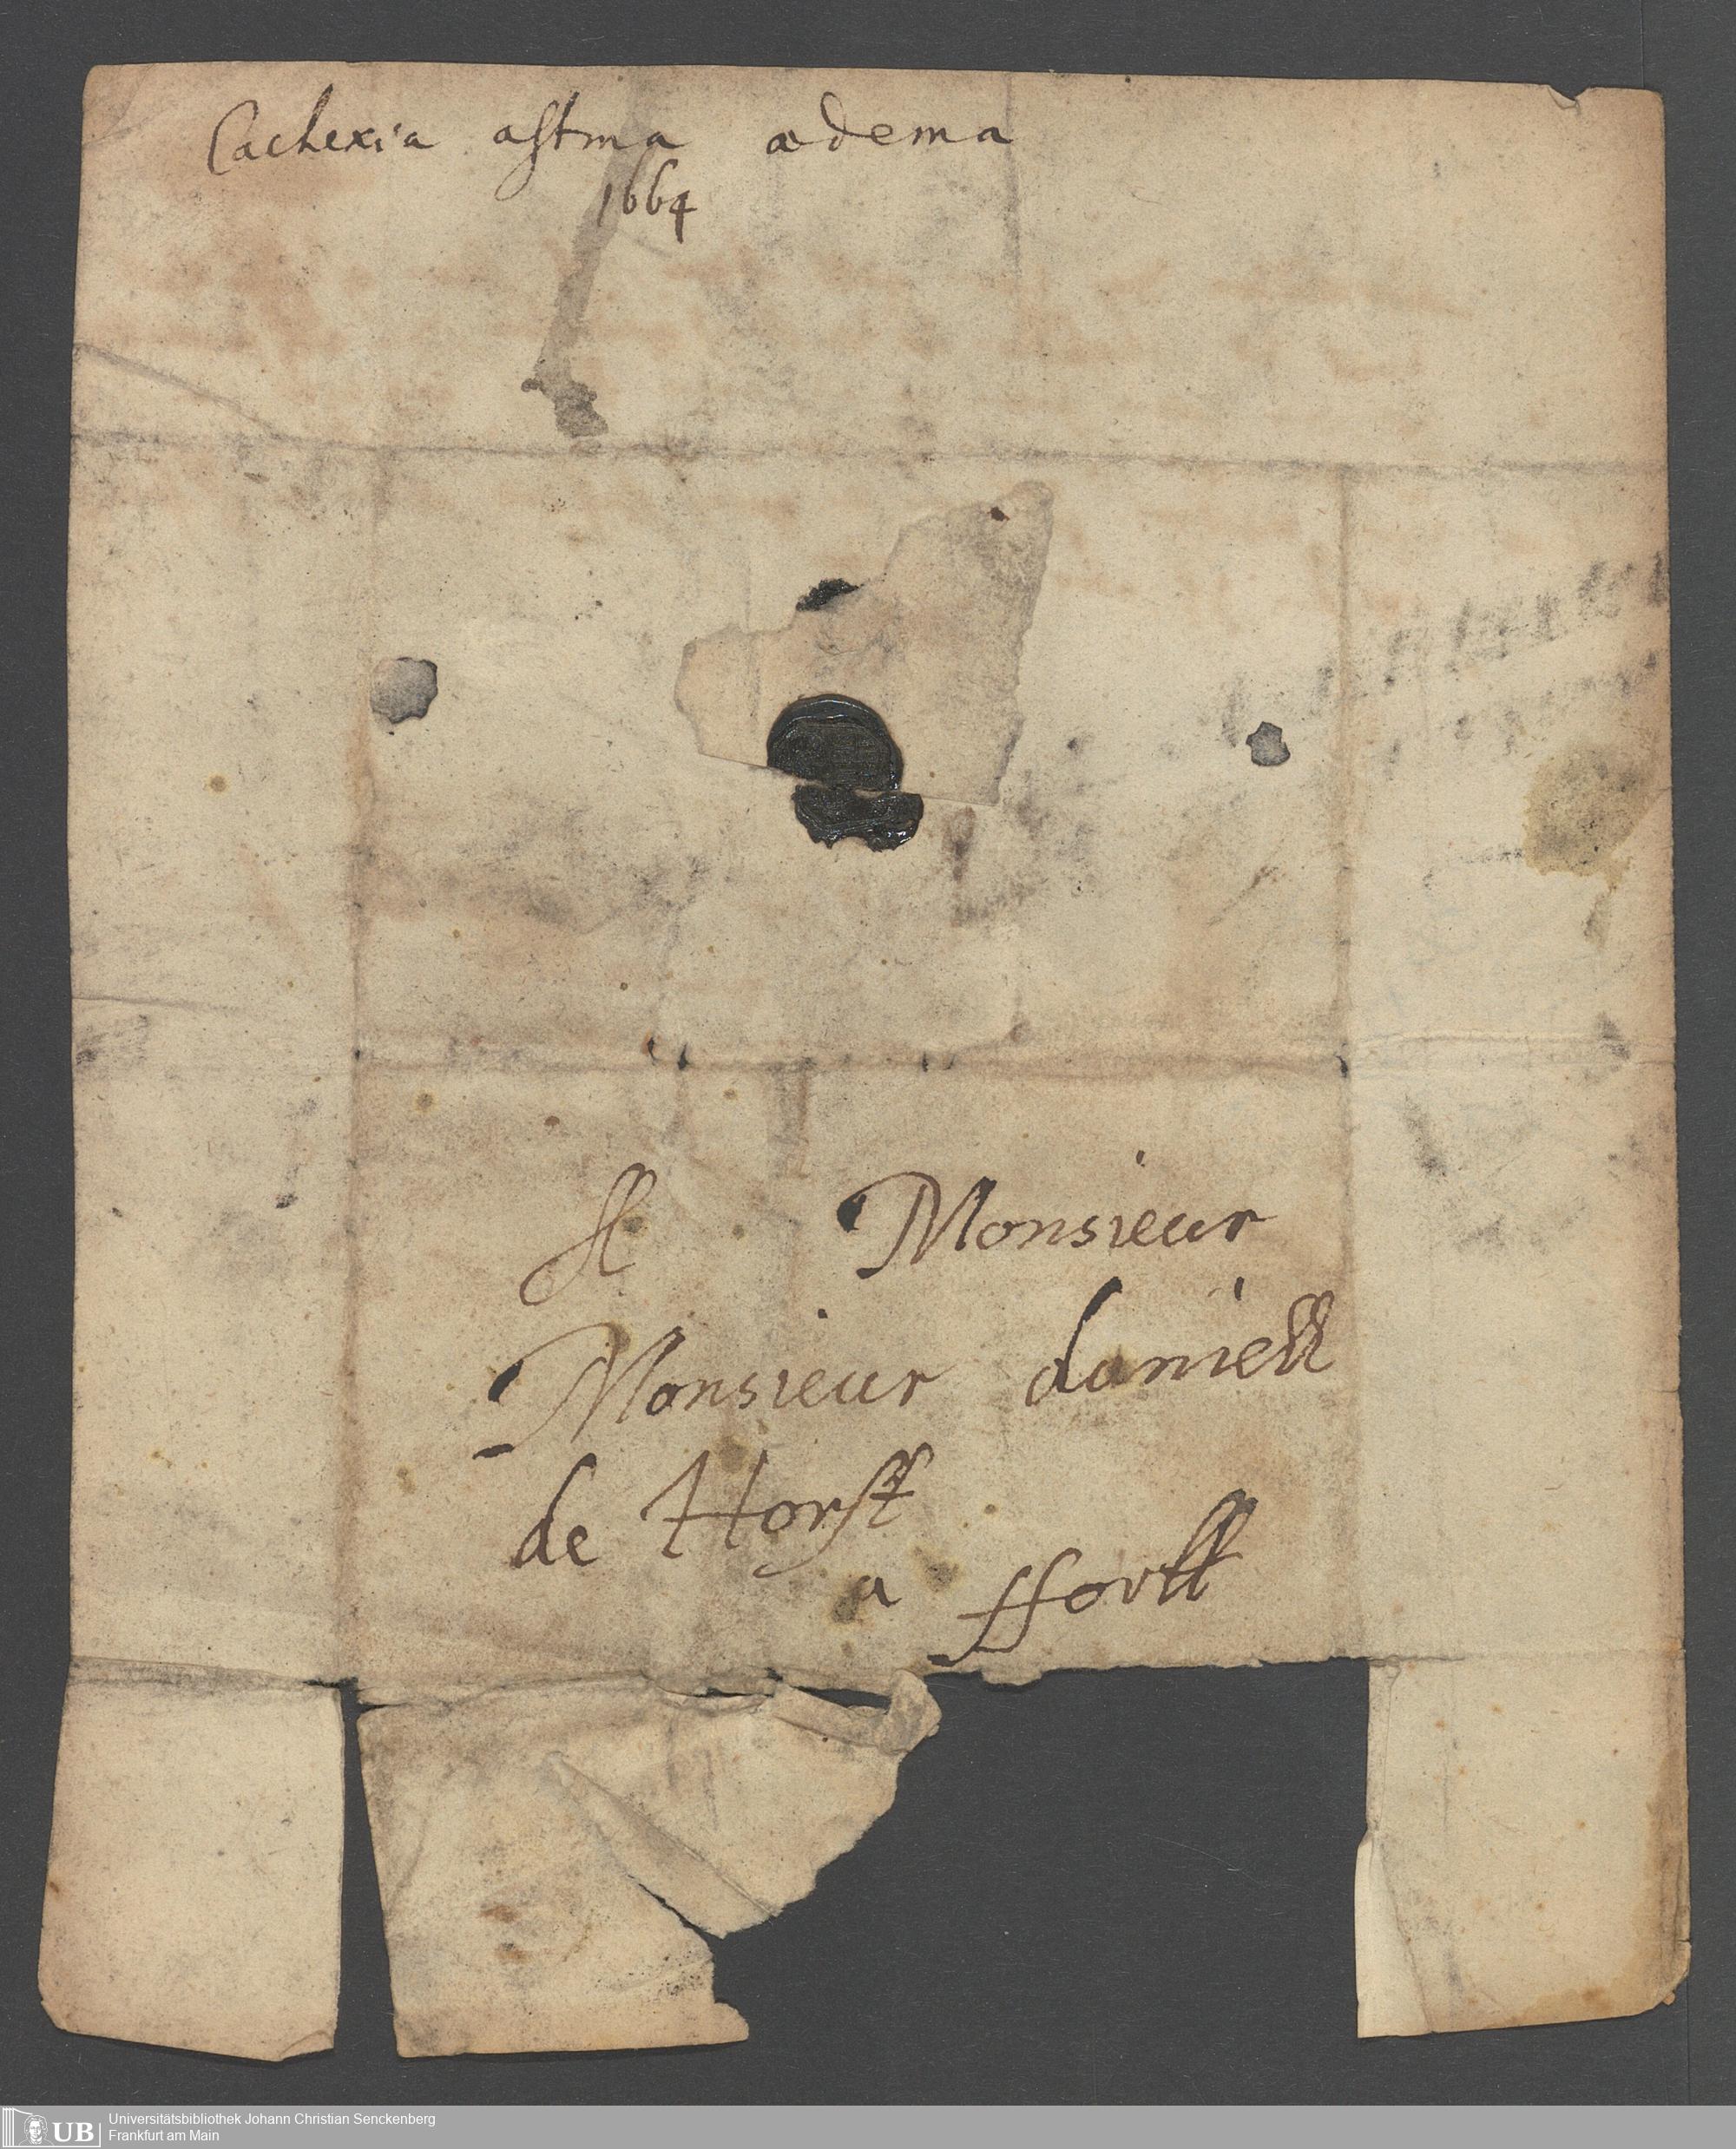 Cachexia astma ædema
1664
A Monsieur
Monsieur daniell
de Horst
a ffortt
UB Universitätsbibliothek Johann Christian Senckenberg
Frankfurt am Main